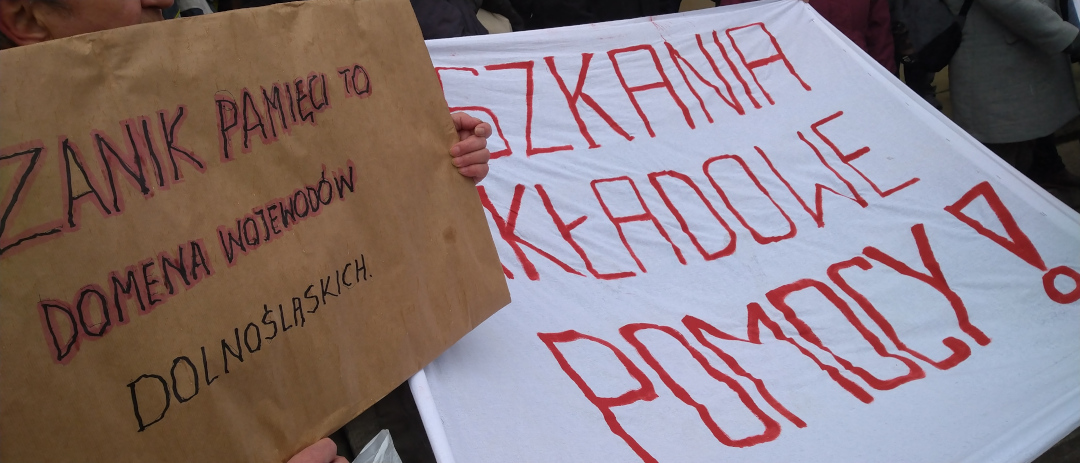 ZANIK PAMIĘCI TO
DOMENA WOJEWODÓW
DOLNOŚLĄSKICH.
SZKANIA
KŁADOWE
POMOCY!